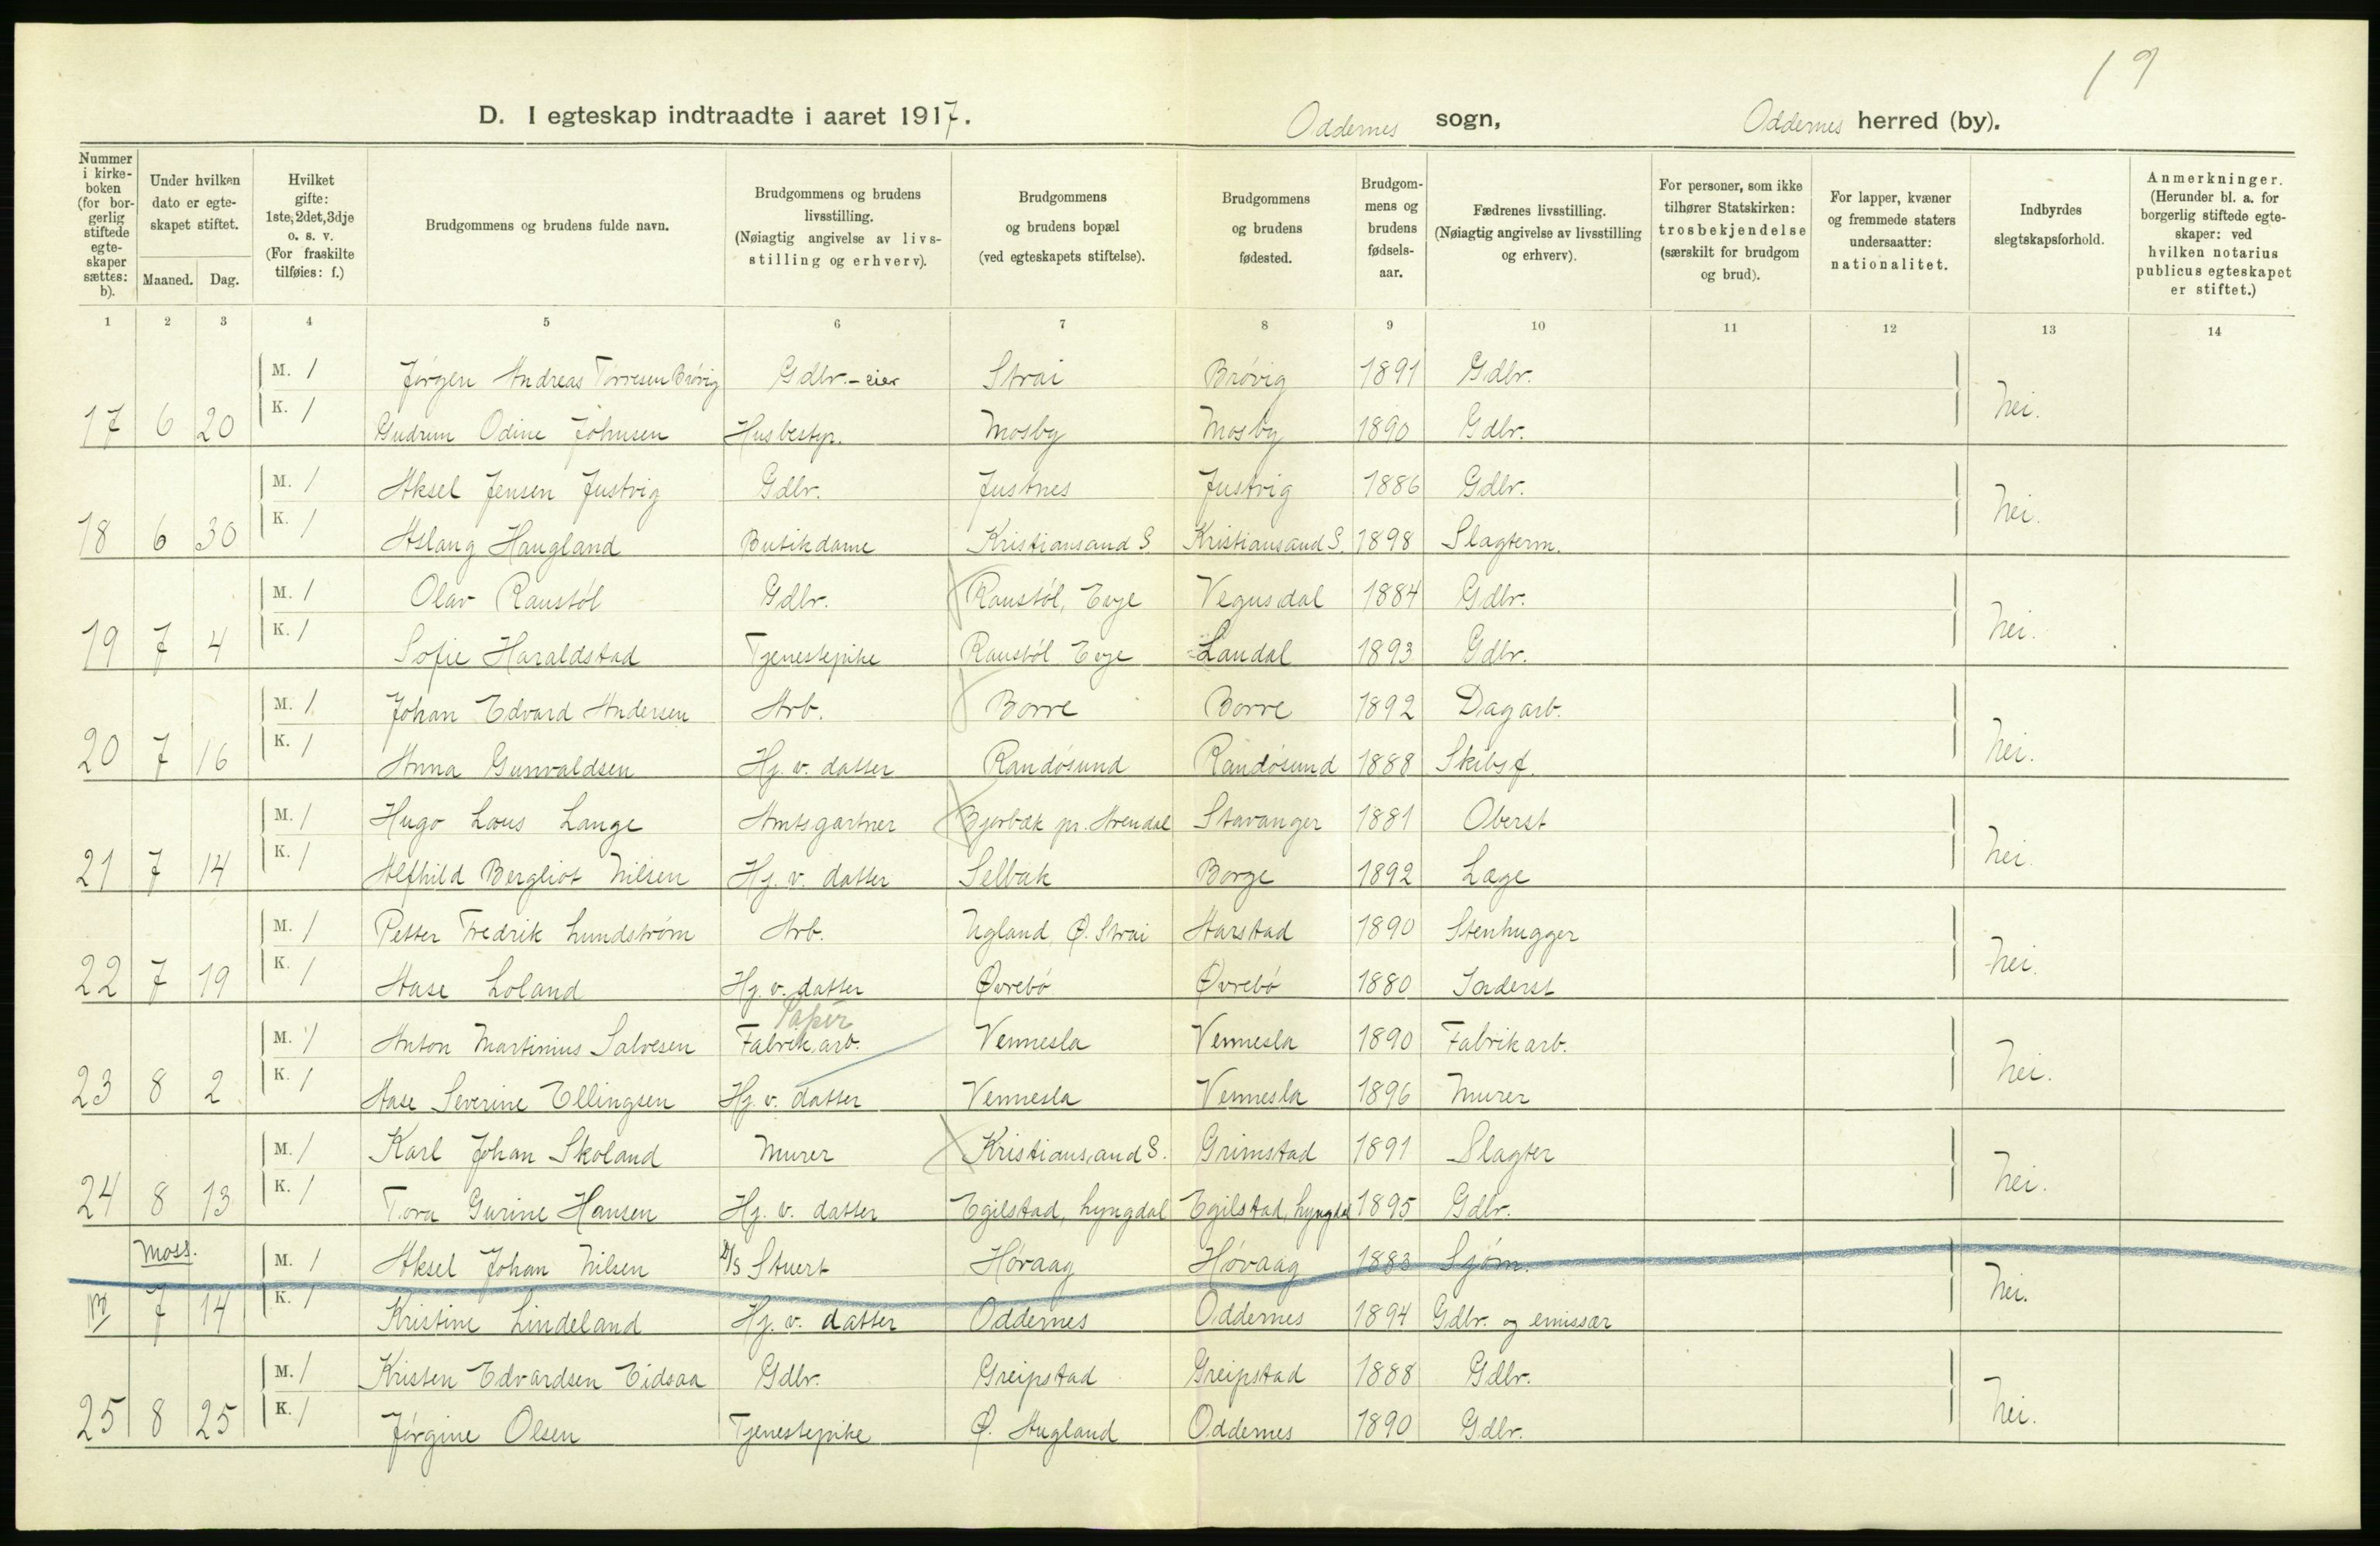 19
D. I egteskap indtraadte i aaret 1917. Oddernes sogn, Oddernes herred (by).
Nummer i kirke-boken (for bor-gerlig stiftede egte-skaper sættes: b).
Under hvilken dato er egte-skapet stiftet.
Maaned. Dag.
Hvilket gifte: 1ste, 2det, 3dje o. s. v. (For fraskilte tilføies: f.)
Brudgommens og brudens fulde navn.
Brudgommens og brudens livsstilling. (Nøiagtig angivelse av livs-stilling og erhverv).
Brudgommens og brudens bopæl (ved egteskapets stiftelse).
Brudgommens og brudens fødested.
Brudgom-mens og brudens fødsels-aar.
Fædrenes livsstilling. (Nøiagtig angivelse av livsstilling og erhverv).
For personer, som ikke tilhører Statskirken: trosbekjendelse (særskilt for brudgom og brud).
For lapper, kvæner og fremmede staters undersaatter: nationalitet.
Indbyrdes slegtskapsforhold.
Anmerkninger. (Herunder bl. a. for borgerlig stiftede egte-skaper: ved hvilken notarius publicus egteskapet er stiftet.)
1 2 3 4 5 6 7 8 9 10 11 12 13 14
M. 1 Jørgen Andreas Torresen Brøvig Gdbr.-eier Strai Brøvig 1891 Gdbr.
17 6 20 K. 1 Gudrun Odine Johnsen Husbestyr. Mosby Mosby 1890 Gdbr. Nei.
M. 1 Aksel Jensen Justvig Gdbr. Justnes Justvig 1886 Gdbr.
18 6 30 K. 1 Aslaug Haugland Butikdame Kristiansand S. Kristiansand S. 1898 Slagterm. Nei.
M. 1 Olav Raustøl Gdbr. Raustøl, Evje Vegusdal 1884 Gdbr.
19 7 4 K. 1 Sofie Haraldstad Tjenestepike Raustøl Evje Laudal 1893 Gdbr. Nei.
M. 1 Johan Edvard Andersen Arb. Borre Borre 1892 Dagarb.
20 7 16 K. 1 Anna Gunvaldsen Hj. v. datter Randøsund Randøsund 1888 Skibsf. Nei.
M. 1 Hugo Lous Lange Amtsgartner Bjorbæk pr. Arendal Stavanger 1881 Oberst
21 7 14 K. 1 Alfhild Bergliot Nilsen Hj. v. datter Selbak Borge 1892 Læge Nei.
M. 1 Petter Fredrik Lundstrøm Arb. Ugland, Ø. Strai Harstad 1890 Stenhugger
22 7 19 K. 1 Aase Loland Hj. v. datter Øvrebø Øvrebø 1880 Inderst Nei.
Papir
M. 1 Anton Martinius Salvesen Fabrik arb. Vennesla Vennesla 1890 Fabrikarb.
23 8 2 K. 1 Aase Severine Ellingsen Hj. v. datter Vennesla Vennesla 1896 Murer Nei.
M. 1 Karl Johan Skoland Murer Kristiansand S. Grimstad 1891 Slagter
24 8 13 K. 1 Tora Gurine Hansen Hj. v. datter Egilstad, Lyngdal Egilstad, Lyngdal 1895 Gdbr. Nei.
Moss. M. 1 Aksel Johan Nilsen D/S Stuert Høvaag Høvaag 1883 Sjøm.
7 14 K. 1 Kristine Lindeland Hj. v. datter Oddernes Oddernes 1894 Gdbr. og emissær Nei.
M. 1 Kristen Edvardsen Eidsaa Gdbr. Greipstad Greipstad 1888 Gdbr.
25 8 25 K. 1 Jørgine Olsen Tjenestepike Ø. Augland Oddernes 1890 Gdbr. Nei.